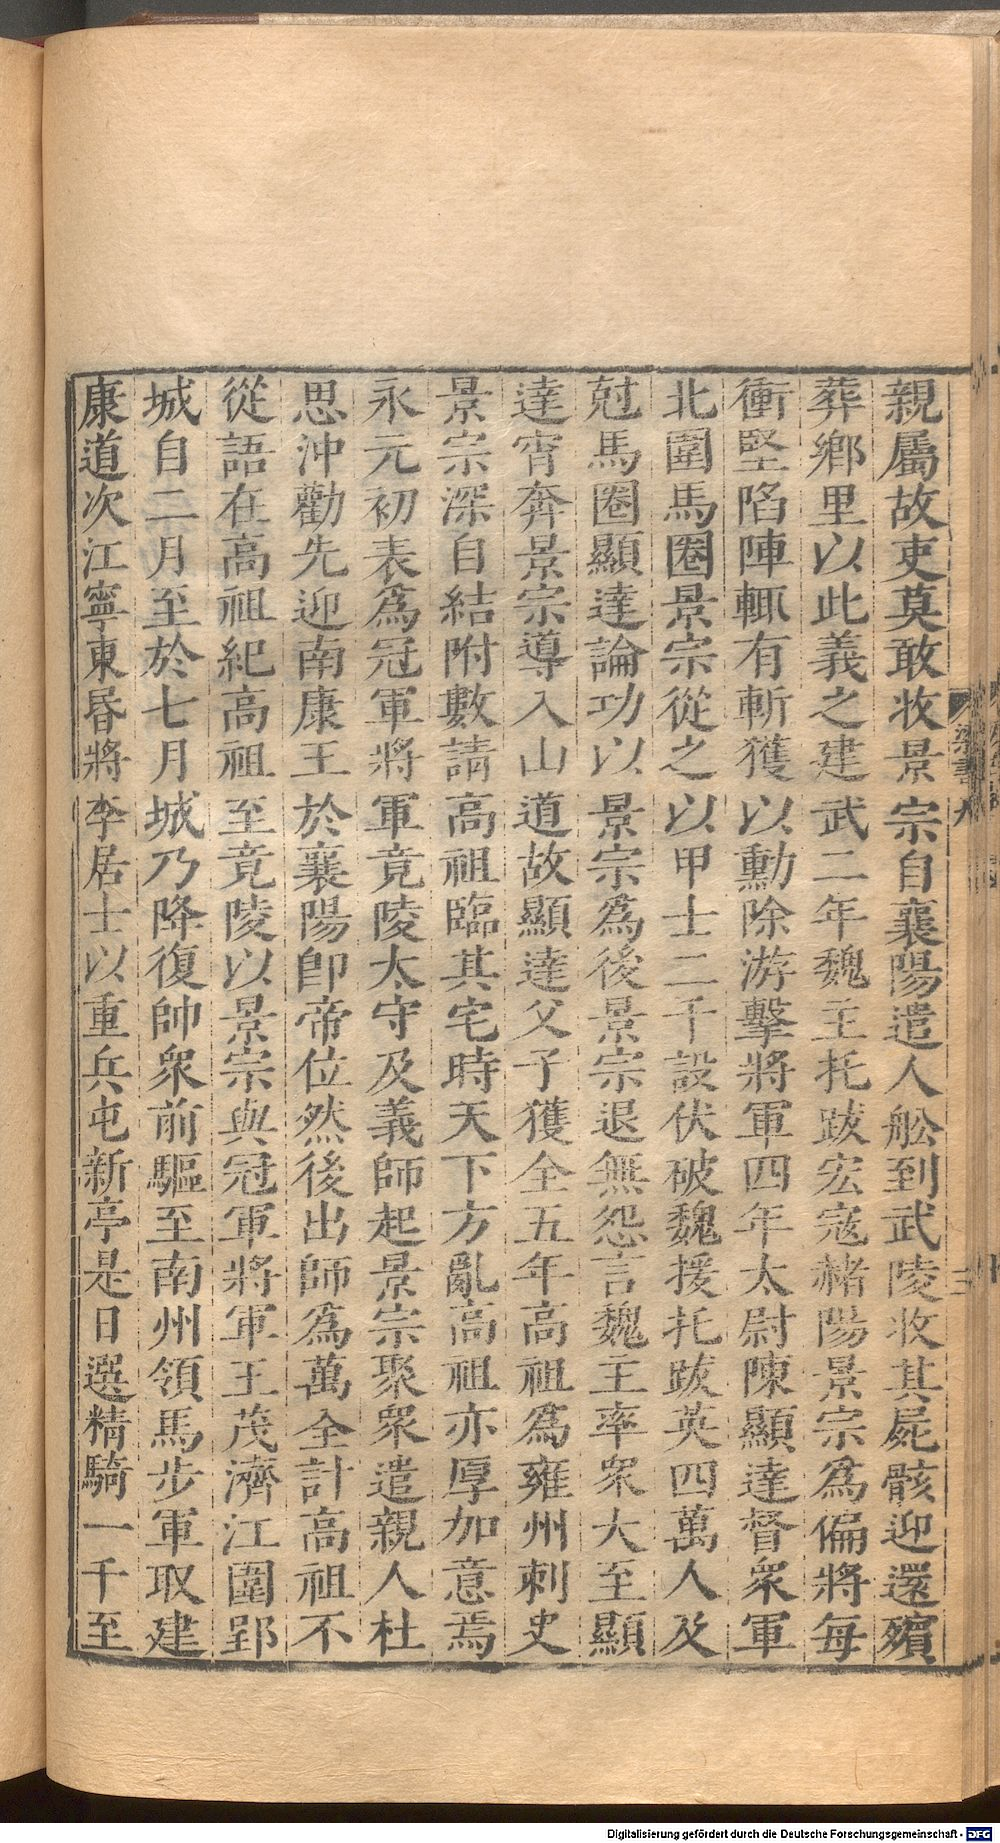 親屬故吏莫敢收景宗自襄陽遣人舩到武陵收其屍骸迎還殯
葬鄉里以此義之建武二年魏主托跋宏寇赭陽景宗爲偏將每
衝堅陷陣輒有斬獲以勳除游擊將軍四年太尉陳顯達督衆軍
北圍馬圈景宗從之以甲士二千設伏破魏援托跋英四萬人及
尅馬圈顯達論功以景宗爲後景宗退無怨言魏王率衆大至顯
達宵奔景宗導入山道故顯達父子獲全五年高祖爲雍州刺史
景宗深自結附數請高祖臨其宅時天下方亂高祖亦厚加意焉
永元初表爲冠軍將軍竟陵太守及義師起景宗聚衆遣親人杜
思沖勸先迎南康王於襄陽卽帝位然後出師爲萬全計高祖不
從語在高祖紀高祖至竟陵以景宗與冠軍將軍王茂濟江圍郢
城自二月至於七月城乃降復帥衆前驅至南州領馬步軍取建
康道次江寧東昏將李居士以重兵屯新亭是日選精騎一千至
梁書九
三
Digitalisierung gefördert durch die Deutsche Forschungsgemeinschaft - DFG